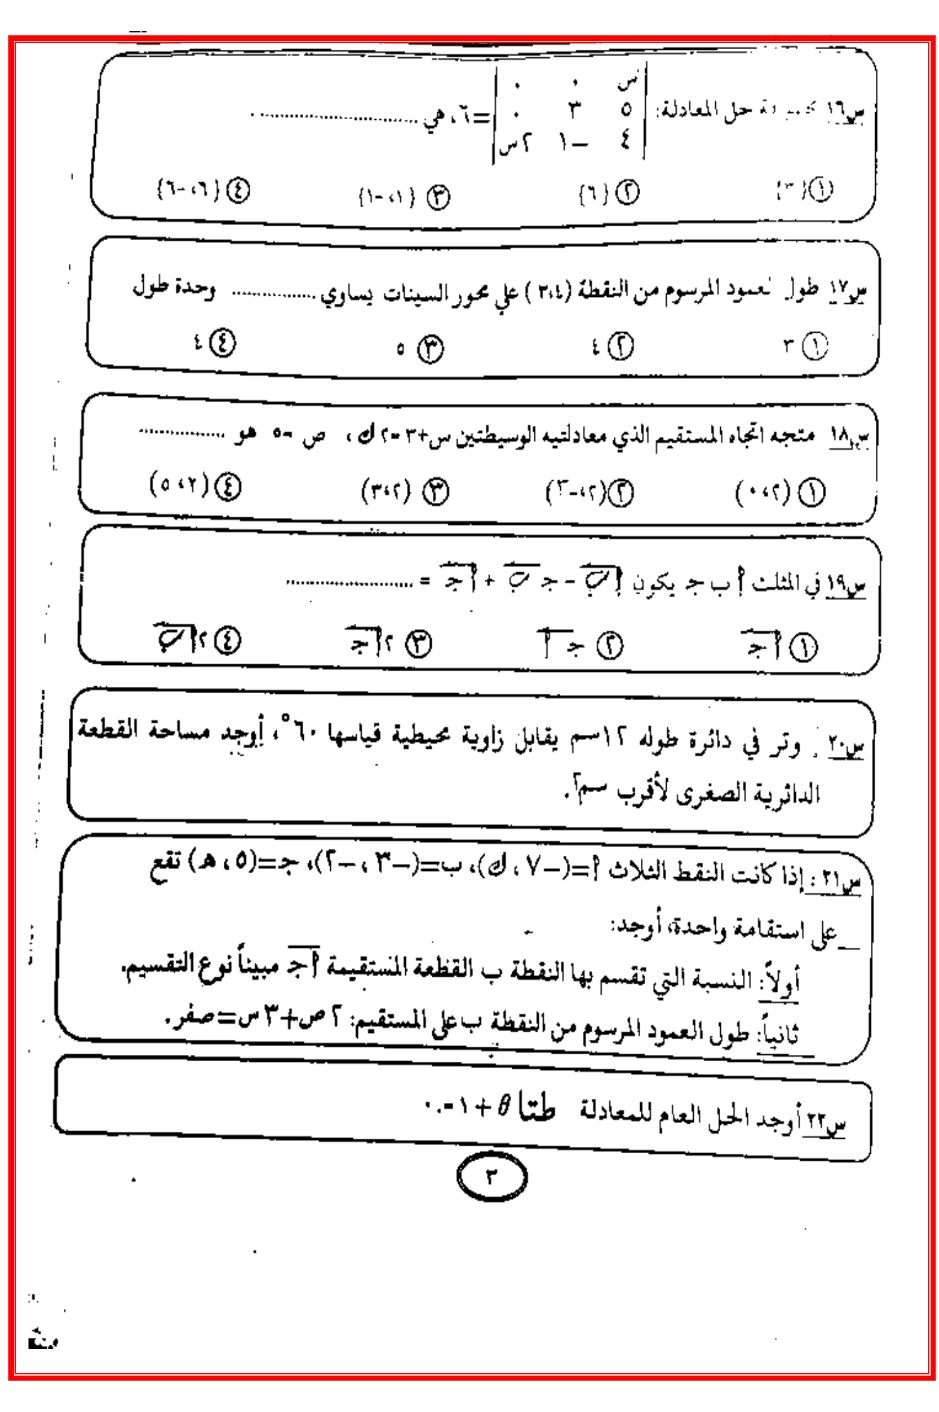 س١٦ حل المعادلة: | س ٠ ٠ |
| ٥ ٣ ٠ | =٦، هي ..............................
| ٤ -١ ٢س |
① {٣} ② {٦} ③ {١، -١} ④ {٦، -٦}
س١٧ طول العمود المرسوم من النقطة (٣،٤) على محور السينات يساوي ................ وحدة طول
① ٣ ② ٤ ③ ٥ ④ ٤
س١٨ متجه اتجاه المستقيم الذي معادلتيه الوسيطتين س+٣=٢ك، ص=٥ هو ................
① (٠،٢) ② (٢،-٣) ③ (٣،٢) ④ (٥،٢)
س١٩ في المثلث أ ب جـ يكون أب - جـ ب + أجـ = ........................
① أجـ ② جـ أ ③ ٢أجـ ④ ٢أب
س٢٠ وتر في دائرة طوله ١٢سم يقابل زاوية محيطية قياسها ٦٠°، أوجد مساحة القطعة
الدائرية الصغرى لأقرب سم٢.
س٢١: إذا كانت النقط الثلاث أ=(-٧، ك)، ب=(-٣، -٢)، جـ=(٥، هـ) تقع
على استقامة واحدة، أوجد:
أولاً: النسبة التي تقسم بها النقطة ب القطعة المستقيمة أجـ مبيناً نوع التقسيم.
ثانياً: طول العمود المرسوم من النقطة ب على المستقيم: ٢ص+٣س=صفر.
س٢٢ أوجد الحل العام للمعادلة طتا θ+١=٠.
٣